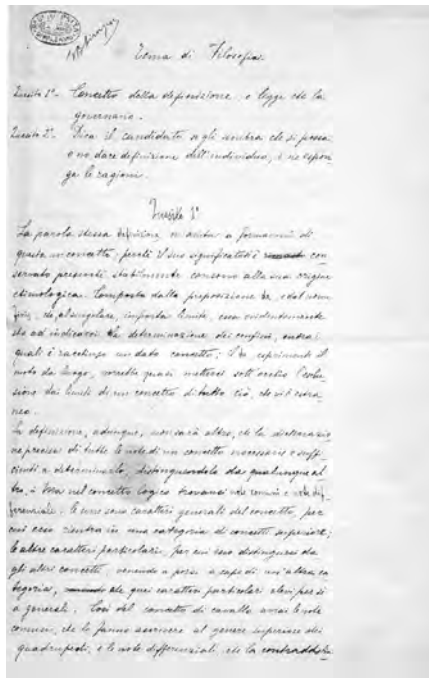 Tema di Filosofia
Quesito 1º - Concetto della definizione, e leggi che la
governano.
Quesito 2º - Dica il candidato se gli sembra che si possa
o no dare definizione dell'individuo, e ne espon
ga le ragioni.
Quesito 1º
La parola stessa definizione ci aiuta a formarcene di
questa un concetto, perchè il suo significato è con
servato presente, stabilmente consono alla sua origine
etimologica. Composta dalla preposizione de, e dal nome
finis, che, al singolare, importa limite, essa evidentemente
sta ad indicarci la determinazione dei confini, entro i
quali è racchiuso un dato concetto; il de esprimendo il
moto da luogo, vorrebbe quasi metterci sott'occhio l'esclu
sione dai limiti di un concetto di tutto ciò, che vi è estra
neo.
La definizione, adunque, non sarà altro, che la dichiarazio
ne precisa di tutte le note di un concetto necessarie e suffi
cienti a determinarlo, distinguendolo da qualunque al
tro. Ora nel concetto logico trovansi note comuni e note dif
ferenziali: le une sono caratteri generali del concetto, per
cui esso rientra in una categoria di concetti superiore;
le altre caratteri particolari, per cui esso distinguesi da
gli altri concetti, venendo a porsi a capo di un'altra ca
tegoria, ale quei caratteri particolari elevansi
a generali. Così del concetto di cavallo avrai le note
comuni, che lo fanno ascrivere al genere superiore dei
quadrupedi, e le note differenziali, che lo